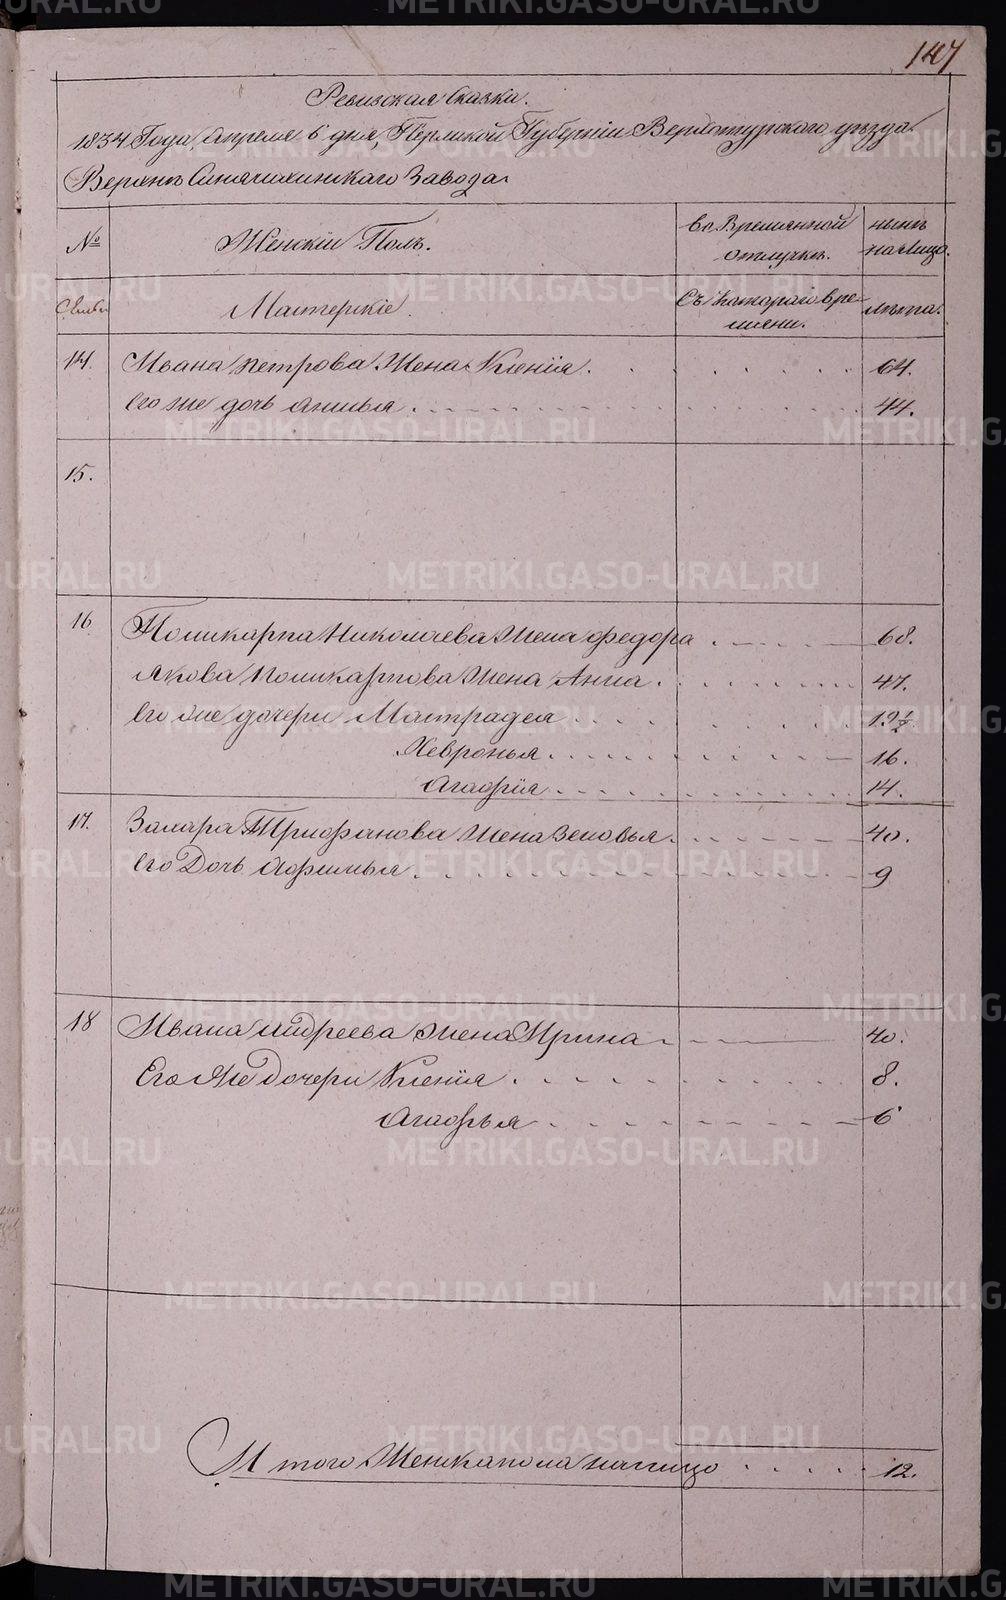 147
Ревизская Сказка.
1834 Года, Апреля 6 дня, Пермской Губернiи Верхотурского уѣзда
Верхнъ Синячихинскаго Завода.
№ Женскiи Полъ. во Времянной отлучкѣ. нынѣ на Лицо.
Семьи Мастерскiе. Съ Котораго времени. лѣта.
14. Ивана Петрова Жена Ксенiя. 64.
Его же дочь Анисья. 44.
15.
16 Поликарпа Николаева Жена Федора 68.
Якова Поликарпова Жена Анна. 47.
Его же дочери Мастрадея 19 1/2
Хевронья. 16.
Агафiя. 14.
17. Захара Трифанова Жена Зеновья. 40.
Его Дочь Афимья. 9
18 Ивана Андреева Жена Ирина 40.
Его Же Дочери Ксенiя. 8.
Агафья 6
Итого Женска пола налицо 12.
METRIKI.GASO-URAL.RU